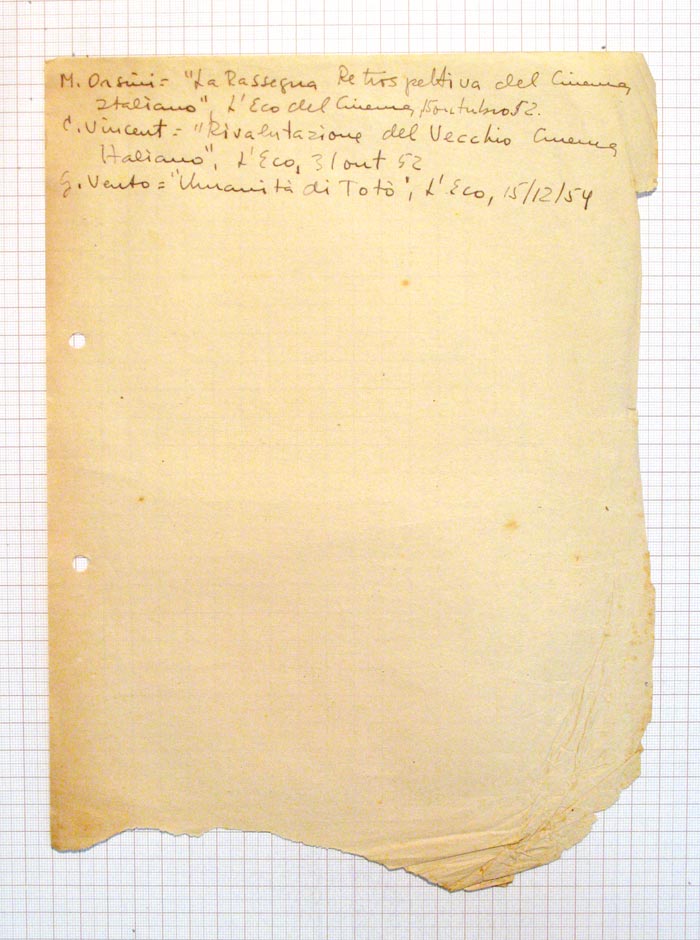 M. Orsini = "La Rassegna Retrospettiva del Cinema
Italiano", L'Eco del Cinema, 15 outubro 52.
C. Vincent = "Rivalutazione del Vecchio Cinema
Italiano", L'Eco, 31 out 52
G. Vento = "Umanità di Totò", L'Eco, 15/12/54